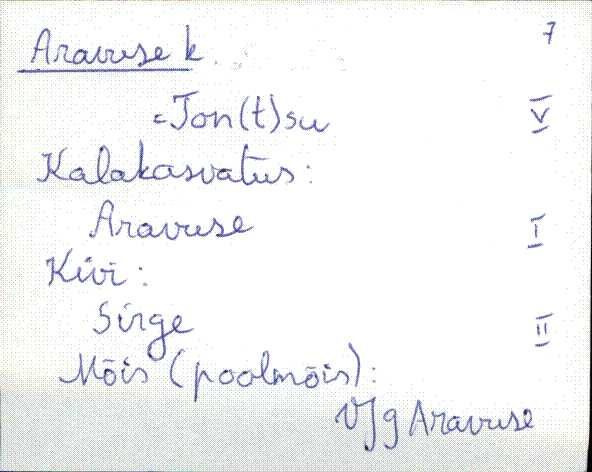 7
Aravuse k.
=Ton(t)su V
Kalakasvatus:
Aravuse I
Kivi:
Sirge II
Mõis (poolmõis):
VJg Aravuse